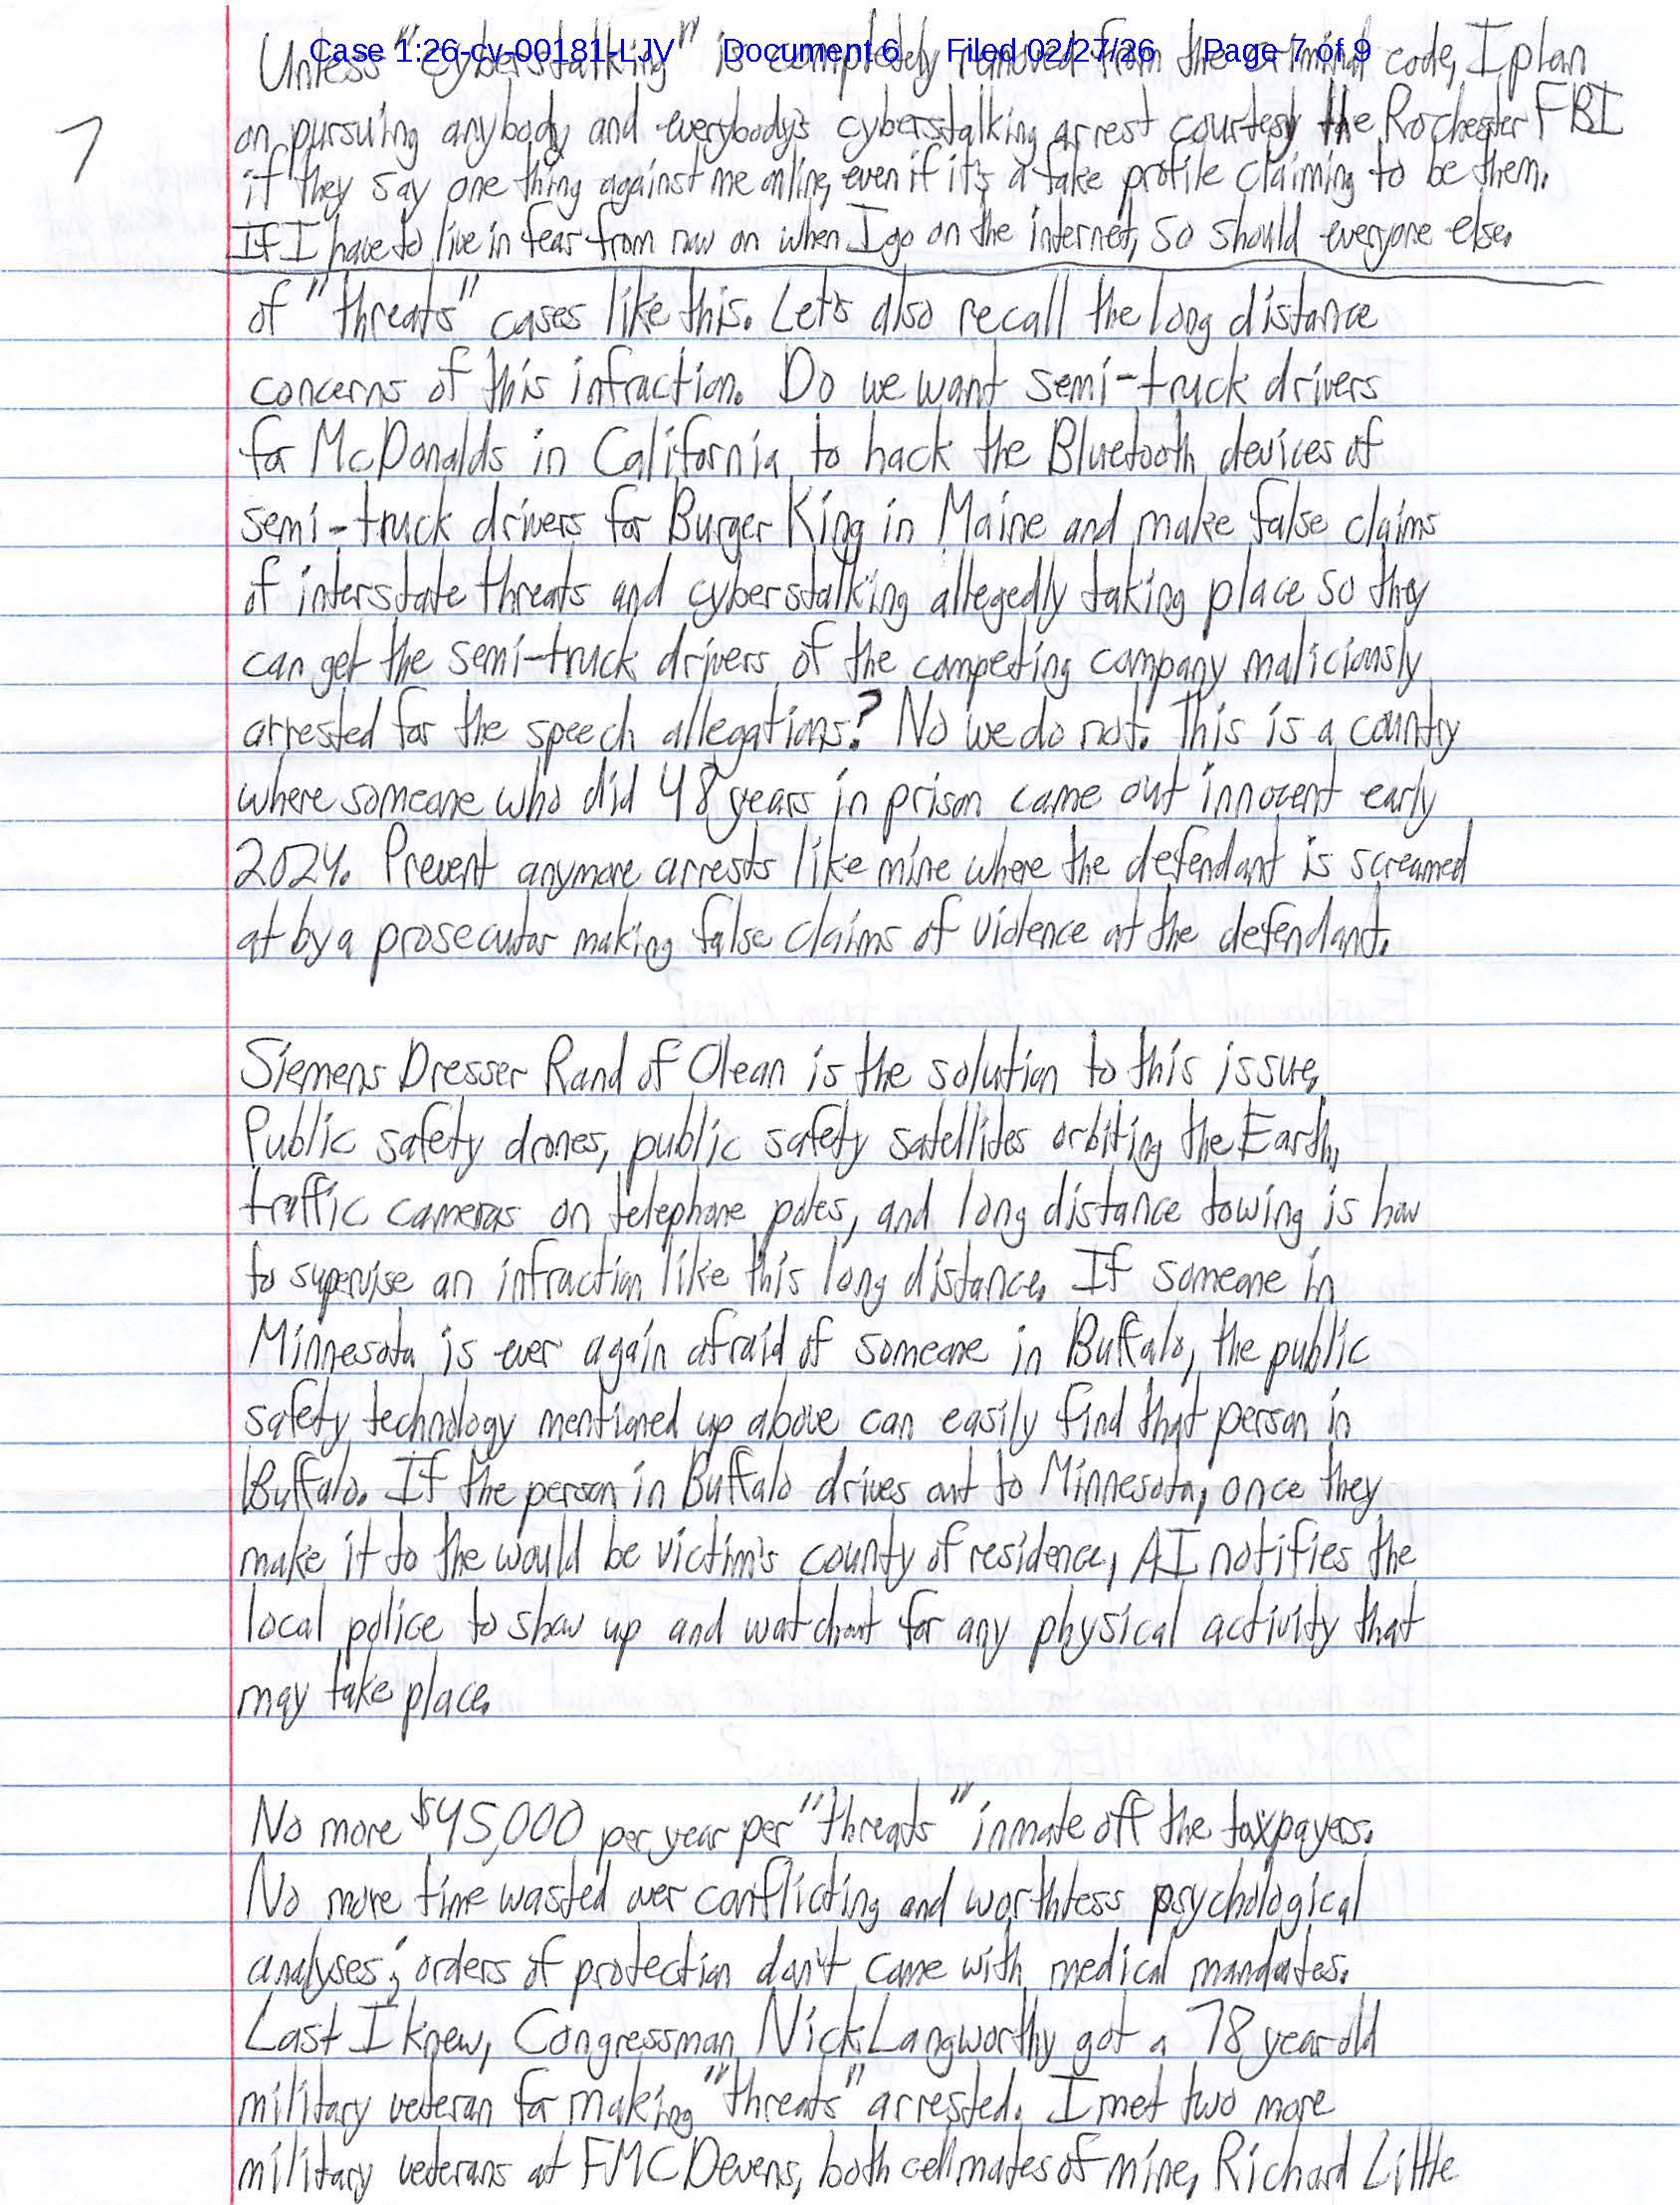 Case 1:26-cv-00181-LJV Document 6 Filed 02/27/26 Page 7 of 9
Unless "cyberstalking" is completely removed from the criminal code, I plan
7
on pursuing anybody and everybody's cyberstalking arrest courtesy the Rochester FBI
if they say one thing against me online, even if it's a fake profile claiming to be them.
If I have to live in fear from now on when I go on the internet, so should everyone else.
of "threats" cases like this. Let's also recall the long distance
concerns of this infraction. Do we want semi-truck drivers
for McDonalds in California to hack the Bluetooth devices of
semi-truck drivers for Burger King in Maine and make false claims
of interstate threats and cyberstalking allegedly taking place so they
can get the semi-truck drivers of the competing company maliciously
arrested for the speech allegations? No we do not. This is a country
where someone who did 48 years in prison came out innocent early
2024. Prevent anymore arrests like mine where the defendant is screamed
at by a prosecutor making false claims of violence at the defendant.
Siemens Dresser Rand of Olean is the solution to this issue.
Public safety drones, public safety satellites orbiting the Earth,
traffic cameras on telephone poles, and long distance towing is how
to supervise an infraction like this long distance. If someone in
Minnesota is ever again afraid of someone in Buffalo, the public
safety technology mentioned up above can easily find that person in
Buffalo. If the person in Buffalo drives out to Minnesota, once they
make it to the would be victim's county of residence, AI notifies the
local police to show up and watchout for any physical activity that
may take place.
No more $45,000 per year per "threats" inmate off the taxpayers.
No more time wasted over conflicting and worthless psychological
analyses; orders of protection don't come with medical mandates.
Last I knew, Congressman Nick Langworthy got a 78 year old
military veteran for making "threats" arrested. I met two more
military veterans at FMC Devens, both cellmates of mine, Richard Little